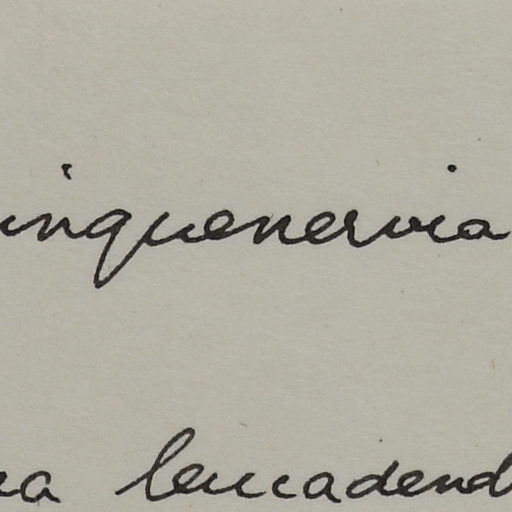 inquenervia
ca leucadend